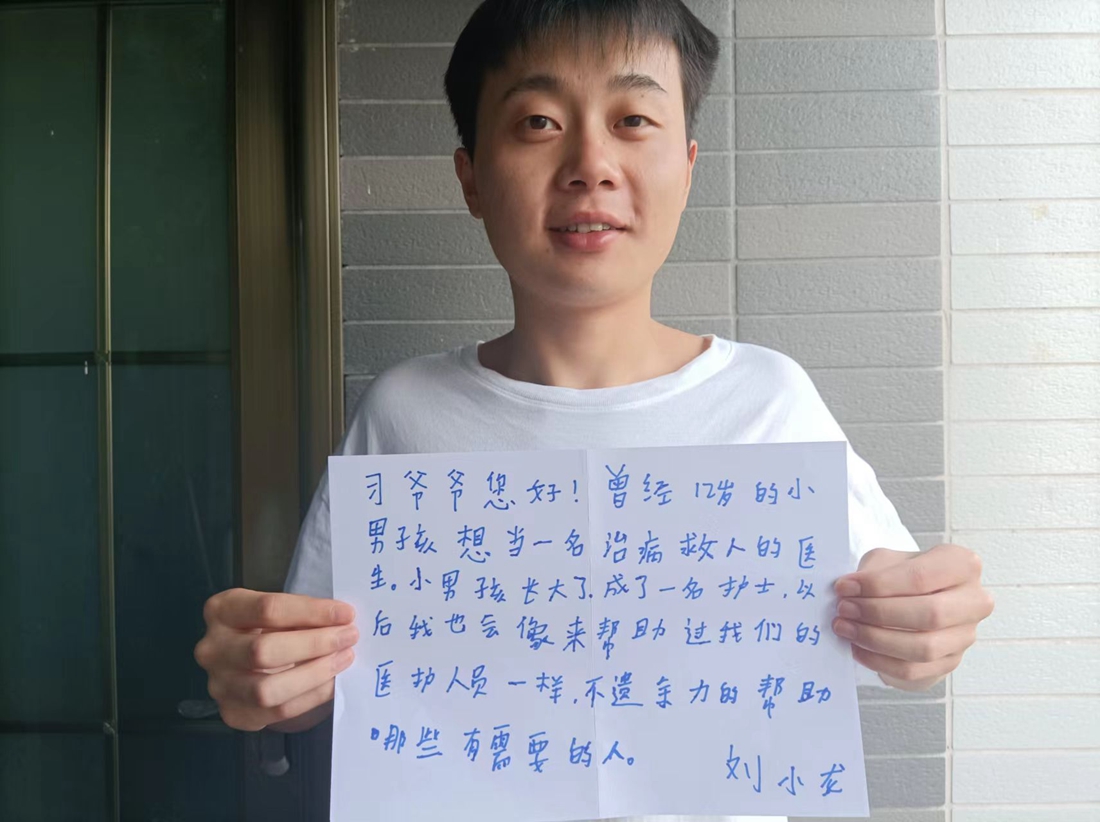 习爷爷您好！曾经12岁的小
男孩想当一名治病救人的医
生。小男孩长大了.成了一名护士,以
后我也会像来帮助过我们的
医护人员一样,不遗余力的帮助
哪些有需要的人。
刘小龙